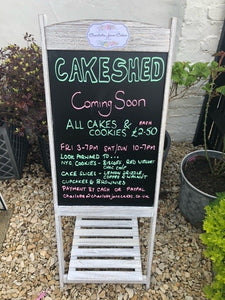 Charlotte Jane Cakes
CAKESHED
Coming Soon
ALL CAKES & EACH
COOKIES £2.50
FRI 3-7PM SAT/SUN 10-7PM
LOOK FORWARD TO...
NYC COOKIES - BISCOFF, RED VELVET
CHOC CHIP
CAKE SLICES - LEMON DRIZZLE
COFFEE & WALNUT
CUPCAKES & BROWNIES
PAYMENT BY CASH OR PAYPAL
charlotte@charlottejanecakes.co.uk